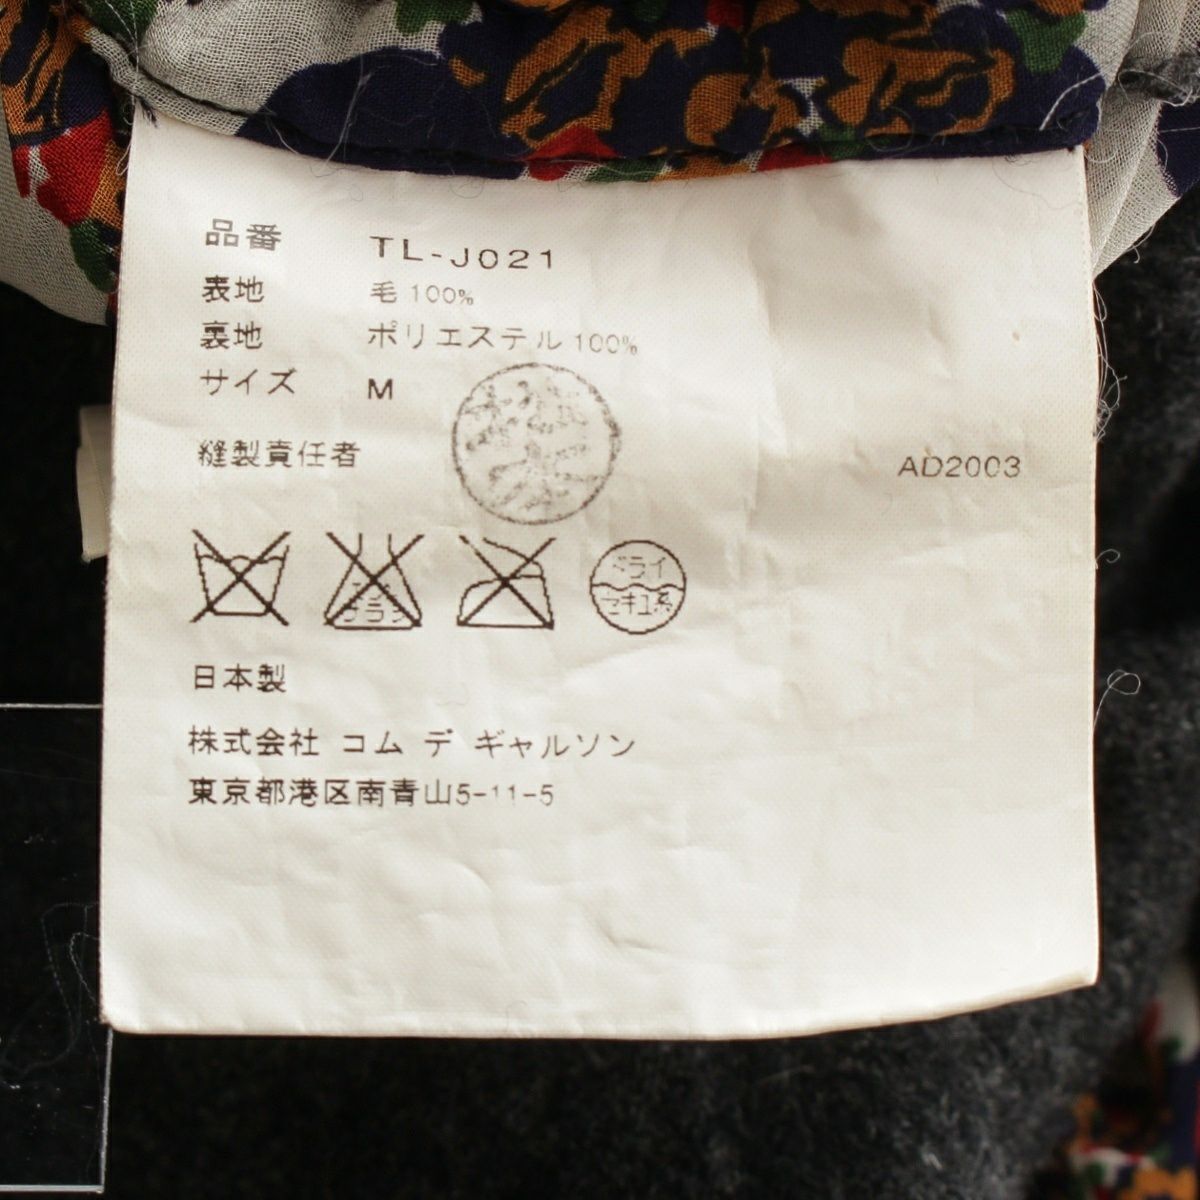 品番 TL-J021
表地 毛 100%
裏地 ポリエステル 100%
サイズ M
縫製責任者
AD2003
ドライ
セキユ系
日本製
株式会社 コム デ ギャルソン
東京都港区南青山5-11-5